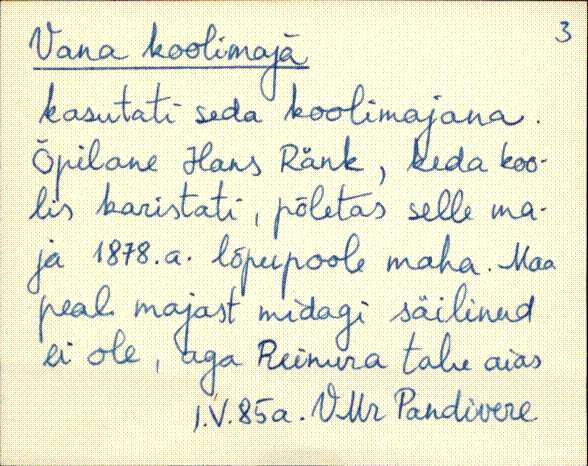 3
Vana koolimaja
kasutati seda koolimajana.
Õpilane Hans Ränk, keda koo-
lis karistati, põletas selle ma-
ja 1878.a. lõpupoole maha. Maa
peal majast midagi säilinud
ei ole, aga Reinura talu aias
1.V.85a. VMr Pandivere